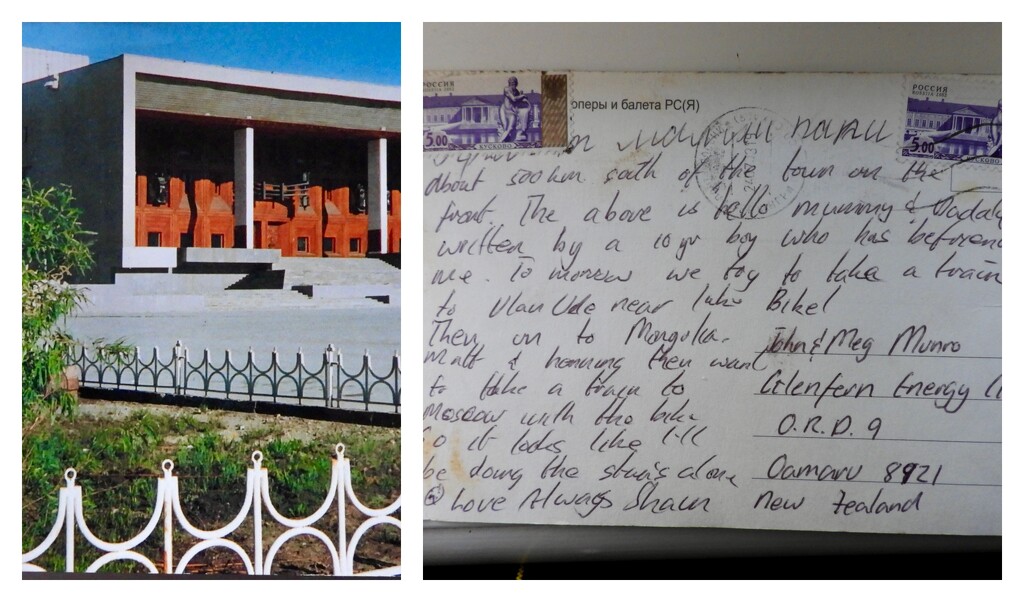 РОССИЯ
5.00
КУСКОВО
оперы и балета РС(Я)
РОССИЯ
5.00
КУСКОВО
about 500 km south of the town on the
front. The above is hello mummy & Dadd
written by a 10 yr boy who has befriend
me. Tomorow we try to take a train
to Ulan Ude near lake Bikel
Then on to Mongolia.
Matt & then want
to take a train to
Moscow with the bike
So it looks like I'll
be doing the alone
Love Always Shaun
John & Meg Munro
Glenfern Energy
O.R.D. 9
Oamaru 8921
New Zealand